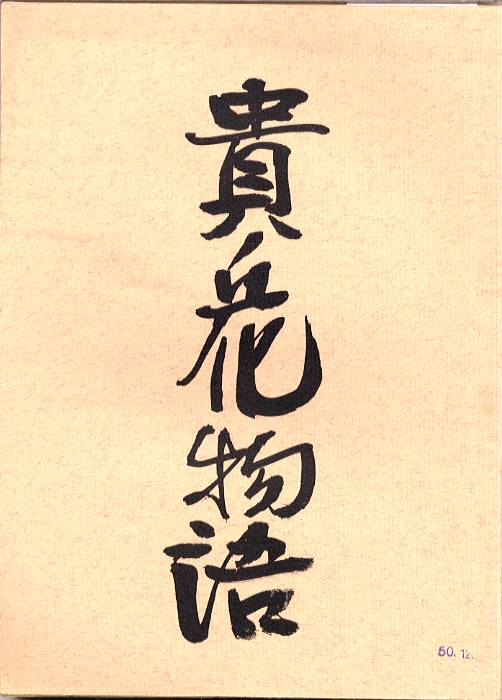 貴花物語
50. 12.